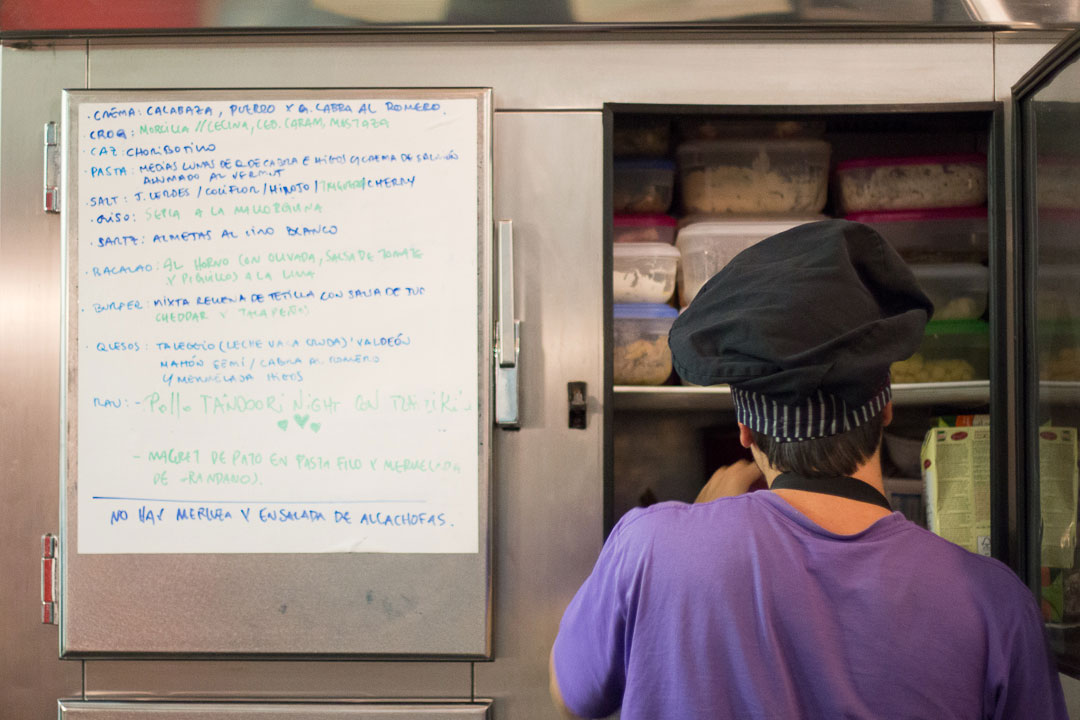 · CREMA: CALABAZA, PUERRO Y Q. CABRA AL ROMERO
· CROQ: MORCILLA // CECINA, CEB. CARAM, MOSTAZA
· CAZ: CHORIBOTINO
· PASTA: MEDIAS LUNAS DE Q. DE CABRA E HIGOS C/CREMA DE SALMÓN
AHUMADO AL VERMUT
· SALT: J. VERDES / COLIFLOR / HINOJO / /CHERRY
· GUISO: SEPIA A LA MALLORQUINA
· SARTZ: ALMEJAS AL VINO BLANCO
· BACALAO: AL HORNO CON OLIVADA, SALSA DE TOMATE
Y PIQUILLO) A LA LIMA
· BURGER: MIXTA RELLENA DE TETILLA CON SALSA DE
CHEDDAR Y JALAPEÑOS
· QUESOS: TALEGGIO (LECHE VACA CRUDA) / VALDEÓN
MAHÓN SEMI / CABRA AL ROMERO
Y MERMELADA HIGOS
RAU: - POLLO TANDOORI NIGHT CON TZAZIKI
- MAGRET DE PATO EN PASTA FILO Y MERMELADA
DE ARANDANOS.
NO HAY MERLUZA Y ENSALADA DE ALCACHOFAS.